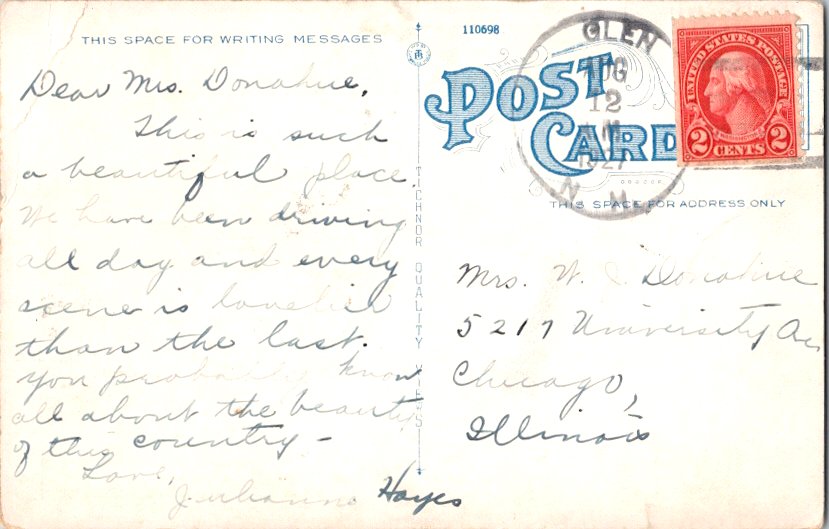 THIS SPACE FOR WRITING MESSAGES
Dear Mrs. Donahue,
This is such
a beautiful place.
We have been driving
all day and every
scene is lovelier
than the last.
You probably know
all about the beauty
of this country –
Love,
Julianne Hayes
TECHNOR QUALITY VIEWS
110698
POST
CARD
GLEN
AUG
12
M
1927
N. H.
UNITED STATES POSTAGE
2 CENTS 2
THIS SPACE FOR ADDRESS ONLY
Mrs. W. C. Donahue
5217 University Av
Chicago,
Illinois